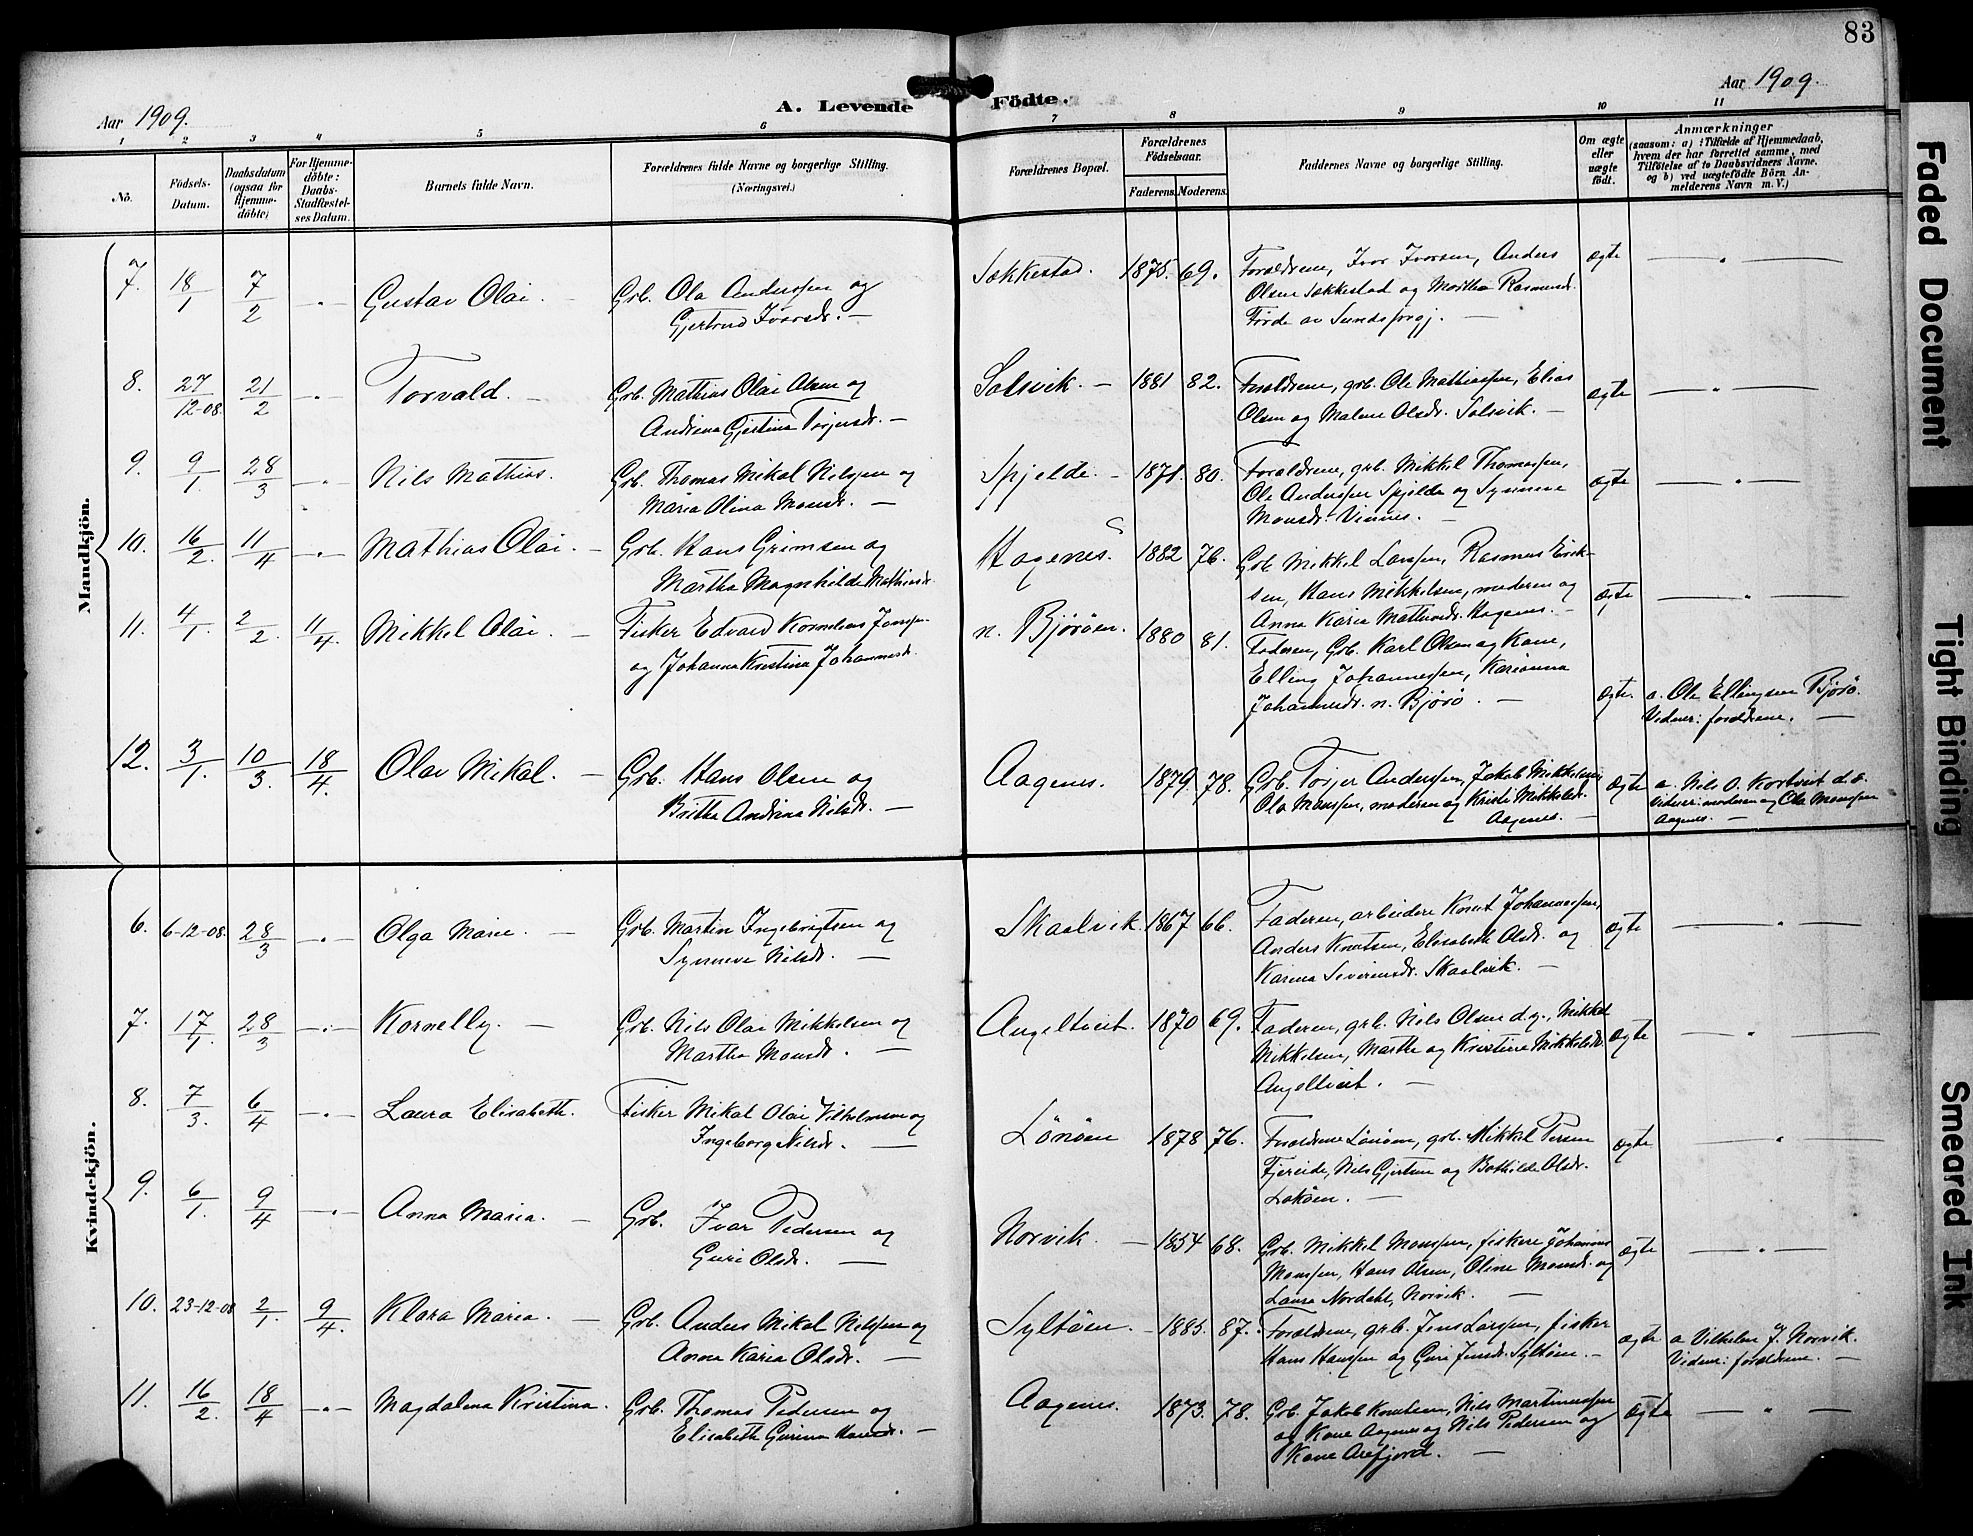 83
Aar 1909.
A. Levende Födte.
Aar 1909.
1 2 3 4 5 6 7 8 9 10 11
No.
Födsels-Datum.
Daabsdatum (ogsaa for Hjemme-döbte)
For Hjemme-döbte: Daabs-Stadfæstel-ses Datum.
Barnets fulde Navn.
Forældrenes fulde Navne og borgerlige Stilling.
(Næringsvei.)
Forældrenes Bopæl.
Forældrenes Födselsaar.
Faderens. Moderens.
Faddernes Navne og borgerlige Stilling.
Om ægte eller uægte födt.
Anmærkninger
(saasom: a) i Tilfælde af Hjemmedaab,
hvem der har forrettet samme, med
Tilföielse af to Daabsvidners Navne.
og b) ved uægtefödte Börn An-
melderens Navn m. V.)
Mandkjön.
7. 18/1 7/2 -"- Gustav Olai. Grb. Ola Anderssen og
Gjertrud Ivarsdr. —
Søkkestad. 1875. 69. Forældrene, Ivar Ivarsen, Anders
Olsen Søkkestad og Martha Rasmusd.
Førde av Sundsfirgj. —
ægte — " —
8. 27/12-08 21/2 -"- Torvald. Grb. Mathias Olai Olsen og
Andrina Gjertina Torjersdr. —
Solsvik. — 1881 82. Forældrene, grb. Ole Mathiassen, Elias
Olsen og Malene Olsdr. Solsvik. —
ægte — " —
9. 9/1. 28/3 -"- Nils Mathias. Grb. Thomas Mikal Nilssen og
Maria Olina Monsdr. —
Spjelde. — 1871. 80. Forældrene, grb. Mikkel Thomassen,
Ole Anderssen Spjelde og Synneve
Monsdr. Vinnes. —
ægte — " —
10. 16/2. 11/4 -"- Mathias Olai. — Grb. Hans Grimsen og
Martha Magnhilde Mathiasdr.
Hagenes. 1882 76. Grb. Mikkel Larssen, Rasmus Erik-
sen, Hans Mikkelsen, moderen og
Anna Karia Mathiasdr. Hagenes. —
ægte — " —
11. 4/1. 2/2. 11/4. Mikkel Olai. — Fisker Edvard Kornelius Jenssen
og Johanna Kristina Johannesdr.
n. Bjørøen. 1880 81. Faderen, Grb. Karl Olsen og Kone,
Elling Johannessen, Karianna
Johannesdr. n. Bjørø. —
ægte. a. Ole Ellingsen Bjørø.
Vidner: forældrene. —
12. 3/1. 10/3. 18/4. Olav Mikal. — Grb. Hans Olsen og
Britha Andrina Nilsdr. —
Aagenes. 1879. 78. Grb. Torjer Anderssen, Jakob Mikkelsen,
Ola Monssen, moderen og Kristi Mikkelsdr.
Aagenes. —
ægte a. Nils O. Kortveit d.e.
Vidner: moderen og Ola Monssen
Aagenes. —
Kvindekjön.
6. 6-12-08. 28/3 -"- Olga Marie. — Grb. Martin Ingebrigtsen og
Synneve Nilsdr. —
Skaalvik. 1867 66. Faderen, arbeidere Knut Johannessen,
Anders Knutsen, Elisabeth Olsdr. og
Karina Severinsdr. Skaalvik. —
ægte — " —
7. 17/1 28/3 -"- Kornelly. — Grb. Nils Olai Mikkelsen og
Martha Monsdr. —
Angeltveit. 1870 69. Faderen, grb. Nils Olsen d.y., Mikkel
Mikkelsen, Marthe og Kristine Mikkelsdr.
Angeltveit. —
ægte — " —
8. 7/3. 6/4 -"- Laura Elisabeth. Fisker Mikal Olai Vilhelmsen og
Ingeborg Nilsdr. —
Lønøen 1878 76. Forældrene Lønøen, grb. Mikkel Persen
Fjereide, Nils Gjertsen og Bothilde Olsdr.
Lokøen. —
ægte "
9. 6/1. 9/4 -"- Anna Maria. — Grb. Ivar Pedersen og
Guri Olsdr. —
Norvik. — 1854 68. Grb. Mikkel Monssen, fiskere Johannes
Monssen, Hans Olsen, Oline Monsdr. og
Laura Nordahl, Norvik. —
ægte — " —
10. 23-12-08 2/1. 9/4. Klara Maria. — Grb. Anders Mikal Nilssen og
Anna Karia Olsdr. —
Syltøen. — 1885. 87. Forældrene, grb. Jens Larssen, fisker
Hans Hanssen og Guri Jensdr. Syltøen. —
ægte a Vilhelm J. Norvik.
Vidner: forældrene. —
11. 16/2. 18/4 -"- Magdalena Kristina. Grb. Thomas Pedersen og
Elisabeth Gurina Hansdr. —
Aagenes. 1873. 78. Grb. Jakob Knutsen, Nils Martinussen
og Kone Aagenes og Nils Pedersen og
Kone Arefjord. —
ægte — " —
Faded Document
Tight Binding
Smeared Ink